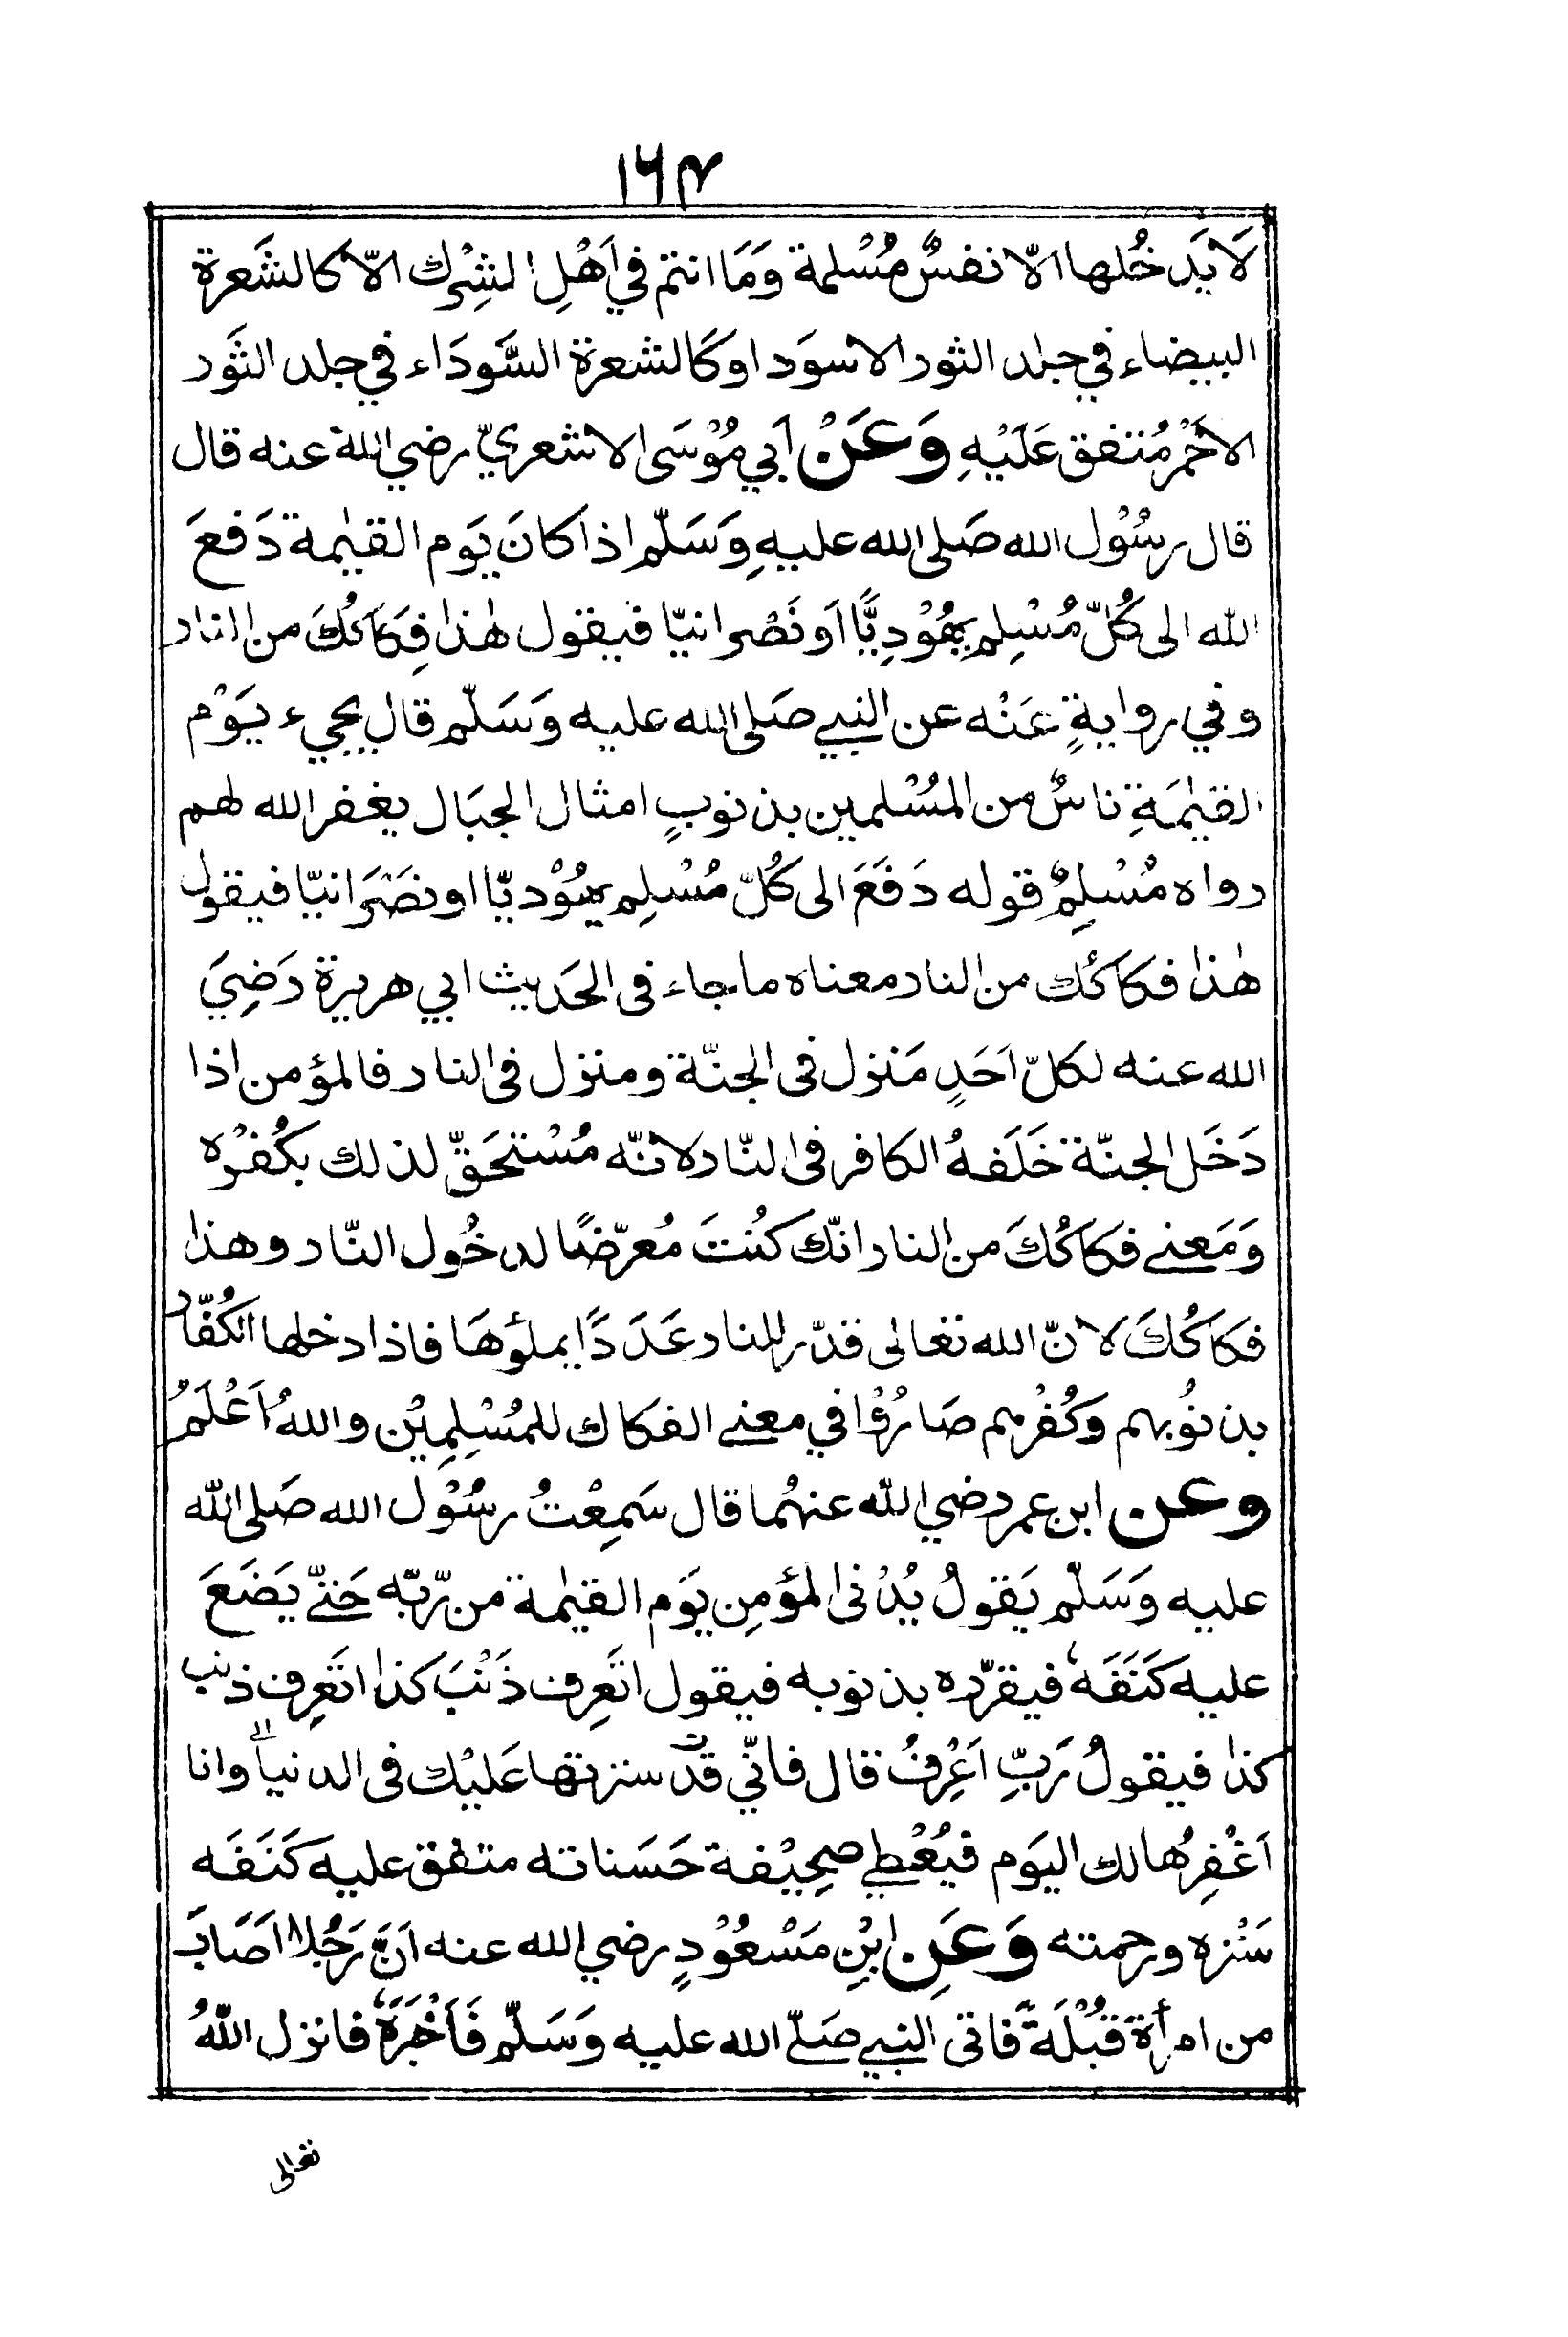 ١٦٤
لَا يَدخُلها الّا نفسٌ مُسْلمة وَمَا انتم في اَهْلِ الشِرْك الّا كالشَعرة
البيضاء في جلد الثور الاسوَد او كَالشعرة السَّودَاء في جلد الثَور
الاحْمر مُتفق عَلَيْهِ وَعَنْ اَبي مُوْسَى الاشعريّ رضي الله عنه قال
قال رسُوْل الله صَلى الله عليهِ وَسَلّم اذا كانَ يَوم القيٰمة دَفعَ
الله الى كُلّ مُسْلِم يَهُوْدِيًّا اَو نَصْرانيّا فيقول هٰذا فِكَاكُكَ من النار
وفي روايةٍ عَنْه عن النبي صَلى الله عليه وَسَلّم قال يجيء يَوْم
القيٰمَةِ ناسٌ من المُسْلمين بذنوبٍ امثال الجبَال يغفر الله لهم
رواه مُسْلِمٌ قوله دَفَعَ الى كُلّ مُسْلِم يهُوْديّا او نصَرَانيّا فيقول
هٰذا فكاكُك من النار معناه ما جاء فى الحَديث ابي هريرة رَضِيَ
الله عنه لكلّ اَحَدٍ مَنزل فى الجنّة ومنزل فى النار فالمؤمن اذا
دَخَل الجنّة خَلَفهُ الكافر فى النّار لانّه مُسْتحَقّ لذلك بكُفْرِه
وَمَعنى فكاكُكَ من النار انّك كُنتَ مُعرّضًا لدخُول النّار وهذا
فكاكُكَ لانّ الله تعالى قدّر للنار عَدَدًا يملؤهَا فاذا دخلها الكُفّار
بذنُوبهم وَكُفْرهم صَارُوْا في معنى الفكاك للمُسْلِمِيْن واللهُ اَعْلَمُ
وعن ابن عمر رضي الله عنهُما قال سَمِعْتُ رسُوْل الله صَلى الله
عليه وَسَلّم يَقولُ يُدْنى المؤمِن يَوَم القيٰمة من رّبّه حَتّى يَضَعَ
عليه كَنَفَهٗ فيقرّره بذنوبه فيقول اتَعرِف ذَنْبَ كذا اتَعرِف ذنب
كذا فيقولُ رَبِّ اَعْرِفُ قال فانّي قدْ سترتها عَليْك فى الدنيا وانا
اَغْفِرُها لك اليَوم فيُعْطى صحِيْفة حَسَناته متفق عليه كَنَفَه
سَتْره ورحمته وَعَنِ ابْنِ مَسْعُوْدٍ رضي الله عنه اَنَّ رَجُلا اَصَابَ
من امرأة قُبْلَةً فاتى النبي صَلّى الله عليه وَسَلّم فَاَخْبَرَهٗ فانزل اللهُ
تعالى